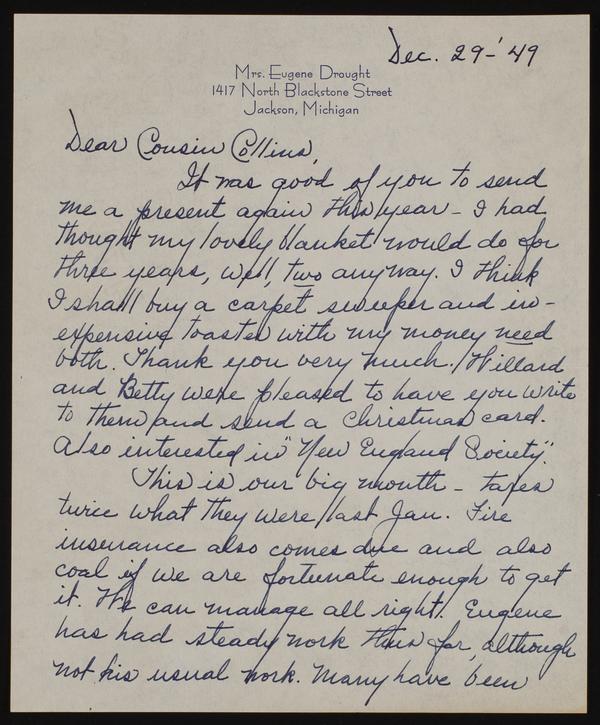 Dec. 29-'49
Mrs. Eugene Drought
1417 North Blackstone Street
Jackson, Michigan
Dear Cousin Collins,
It was good of you to send
me a present again this year - I had
thought my lovely blanket would do for
three years, well, two anyway. I think
I shall buy a carpet sweeper and in-
expensive toaster with my money need
both. Thank you very much. Willard
and Betty were pleased to have you write
to them and send a Christmas card.
Also interested in "New England Society".
This is our big month - taxes
twice what they were last Jan. Fire
insurance also comes due and also
coal if we are fortunate enough to get
it. We can manage all right. Eugene
has had steady work thus far, although
not his usual work. Many have been